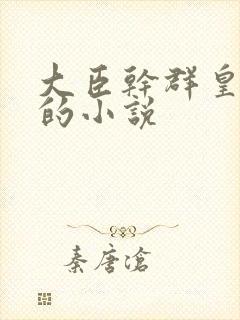 大臣幹群皇
的小說
秦唐滄